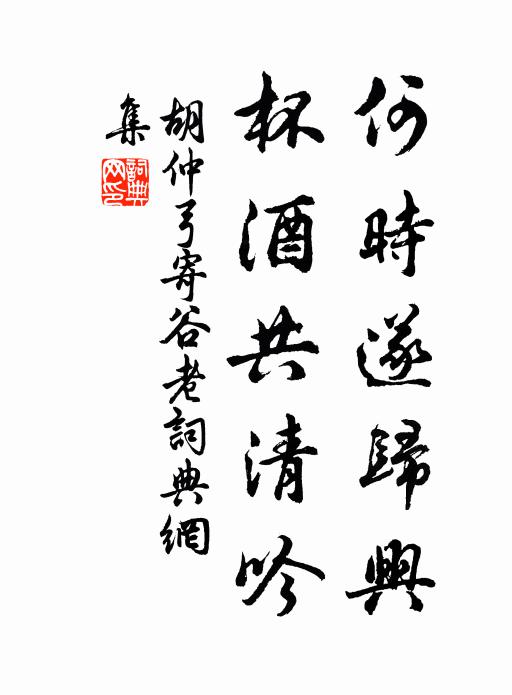 何時遂歸興
杯酒共清吟
胡仲弓寄谷老詞典網
集
詞典
网印